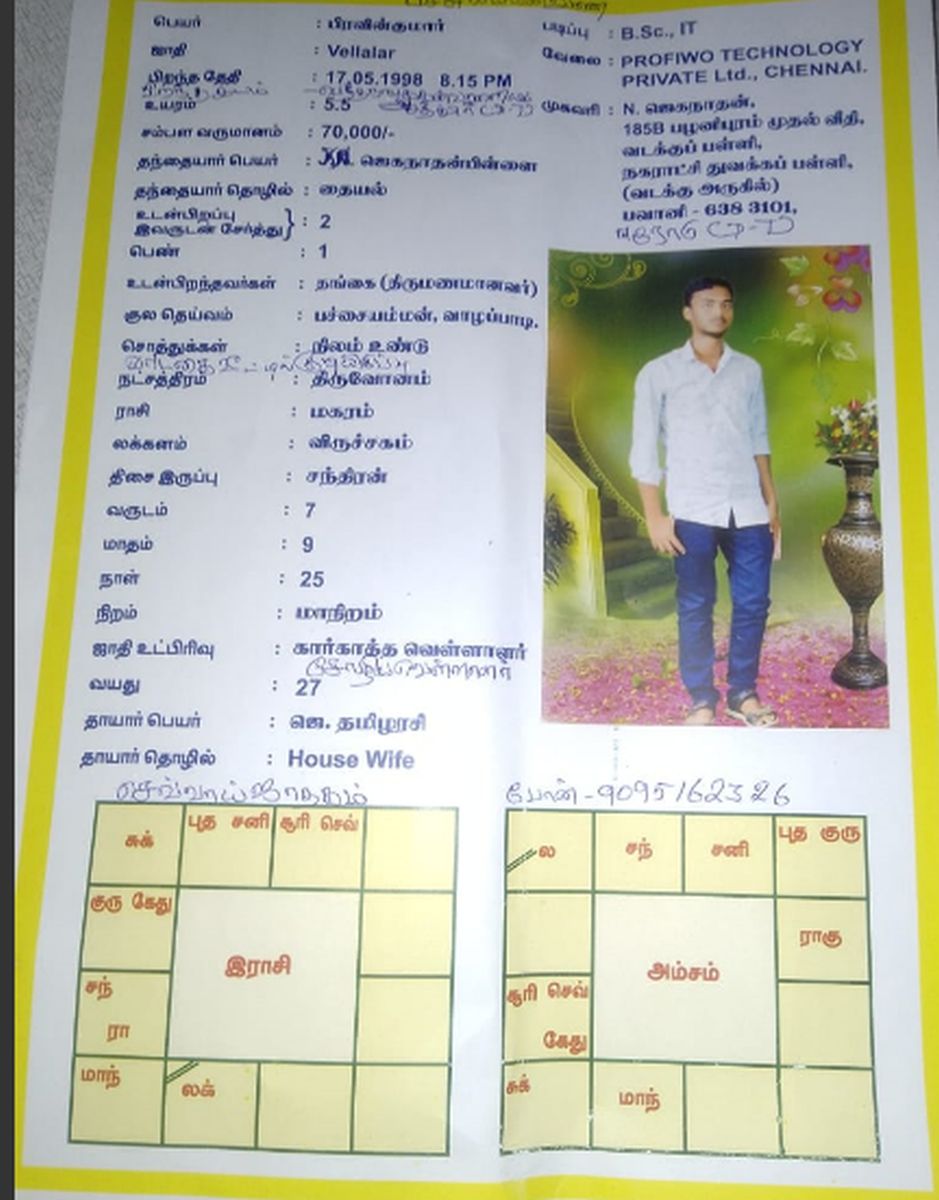 பெயர் : பிரவின்குமார்
ஜாதி : Vellalar
பிறந்த தேதி : 17.05.1998 8.15 PM
உயரம் : 5.5
சம்பள வருமானம் : 70,000/-
தந்தையார் பெயர் : ஜெகநாதன்பிள்ளை
தந்தையார் தொழில் : தையல்
உடன்பிறப்பு
இவருடன் சேர்த்து } : 2
பெண் : 1
உடன்பிறந்தவர்கள் : தங்கை (திருமணமானவர்)
குல தெய்வம் : பச்சையம்மன், வாழப்பாடி.
சொத்துக்கள் : நிலம் உண்டு
நட்சத்திரம் : திருவோணம்
ராசி : மகரம்
லக்கனம் : விருச்சகம்
திசை இருப்பு : சந்திரன்
வருடம் : 7
மாதம் : 9
நாள் : 25
நிறம் : மாநிறம்
ஜாதி உட்பிரிவு : கார்காத்த வெள்ளாளர்
வயது : 27
தாயார் பெயர் : ஜெ. தமிழரசி
தாயார் தொழில் : House Wife
படிப்பு : B.Sc., IT
வேலை : PROFIWO TECHNOLOGY
PRIVATE Ltd., CHENNAI.
முகவரி : N. ஜெகநாதன்,
185B பழனிபுரம் முதல் வீதி,
வடக்குப் பள்ளி,
நகராட்சி துவக்கப் பள்ளி,
(வடக்கு அருகில்)
பவானி - 638 3101,
செவ்வாய் ஜாதகம்
போன் - 9095162326
சுக்
புத சனி
சூரி செவ்
குரு கேது
இராசி
சந்
ரா
மாந்
லக்
ல
சந்
சனி
புத குரு
ராகு
அம்சம்
சூரி செவ்
கேது
சுக்
மாந்